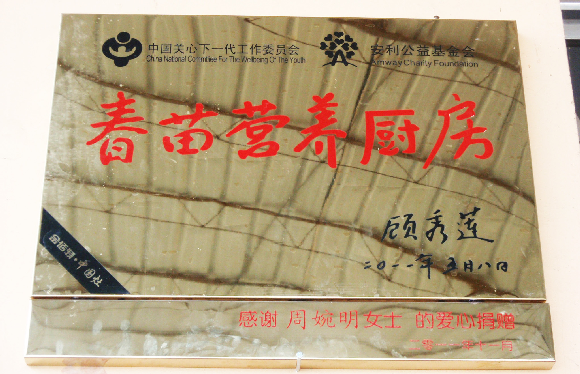 中国关心下一代工作委员会
China National Committee For The Wellbeing Of The Youth
安利公益基金会
Amway Charity Foundation
春苗营养厨房
顾秀莲
二〇一一年五月八日
中国红
感谢 周婉明女士 的爱心捐赠